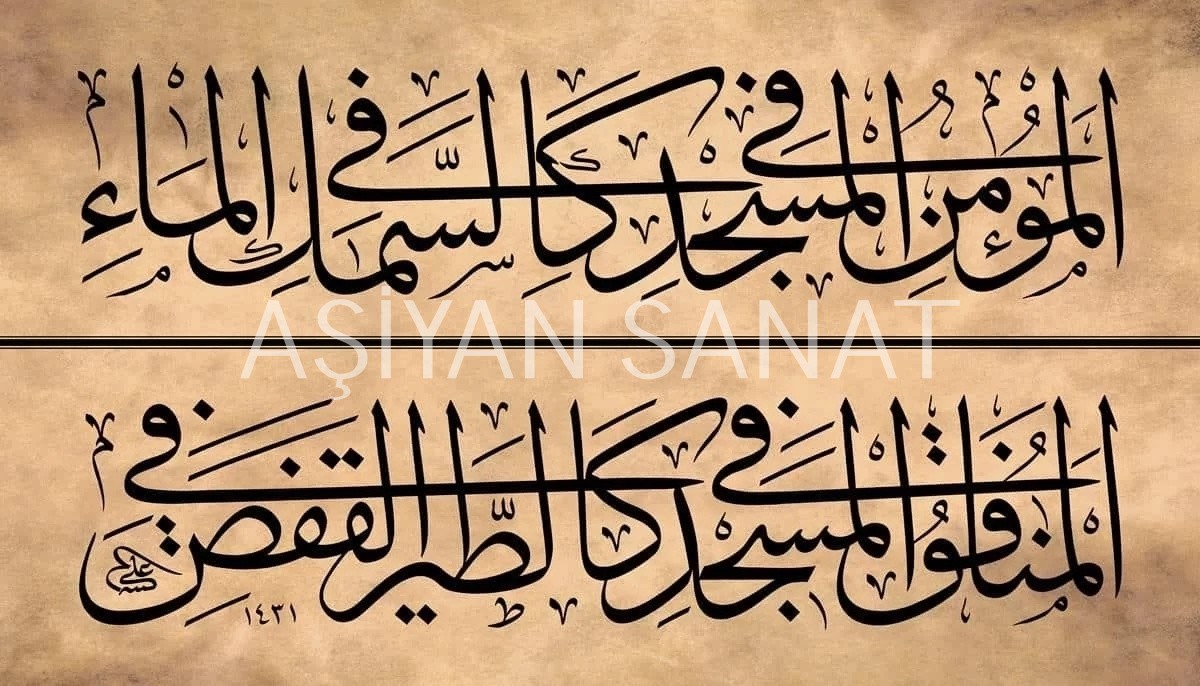 المؤمن في المسجد كالسمك في الماء
AŞİYAN SANAT
المنافق في المسجد كالطير في القفص
١٤٣١